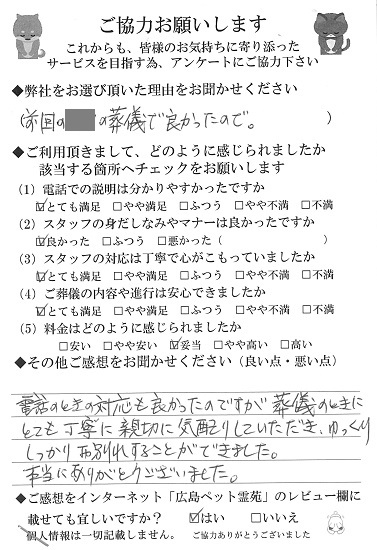 ご協力お願いします
これからも、皆様のお気持ちに寄り添った
サービスを目指す為、アンケートにご協力下さい
◆弊社をお選び頂いた理由をお聞かせください
(前回の の葬儀で良かったので。 )
◆ご利用頂きまして、どのように感じられましたか
該当する箇所へチェックをお願いします
(1) 電話での説明は分かりやすかったですか
☑とても満足 □やや満足 □ふつう □やや不満 □不満
(2) スタッフの身だしなみやマナーは良かったですか
☑良かった □ふつう □悪かった ( )
(3) スタッフの対応は丁寧で心がこもっていましたか
☑とても満足 □やや満足 □ふつう □やや不満 □不満
(4) ご葬儀の内容や進行は安心できましたか
☑とても満足 □やや満足 □ふつう □やや不満 □不満
(5) 料金はどのように感じられましたか
□安い □やや安い ☑妥当 □やや高い □高い
◆その他ご感想をお聞かせください (良い点・悪い点)
電話のときの対応も良かったのですが葬儀のときに
とても丁寧に親切に気配りしていただき、ゆっくり
しっかりお別れすることができました。
本当にありがとうございました。
◆ご感想をインターネット「広島ペット霊苑」のレビュー欄に
載せても宜しいですか? ☑はい □いいえ
個人情報は一切記載しません。 ご協力ありがとうございました